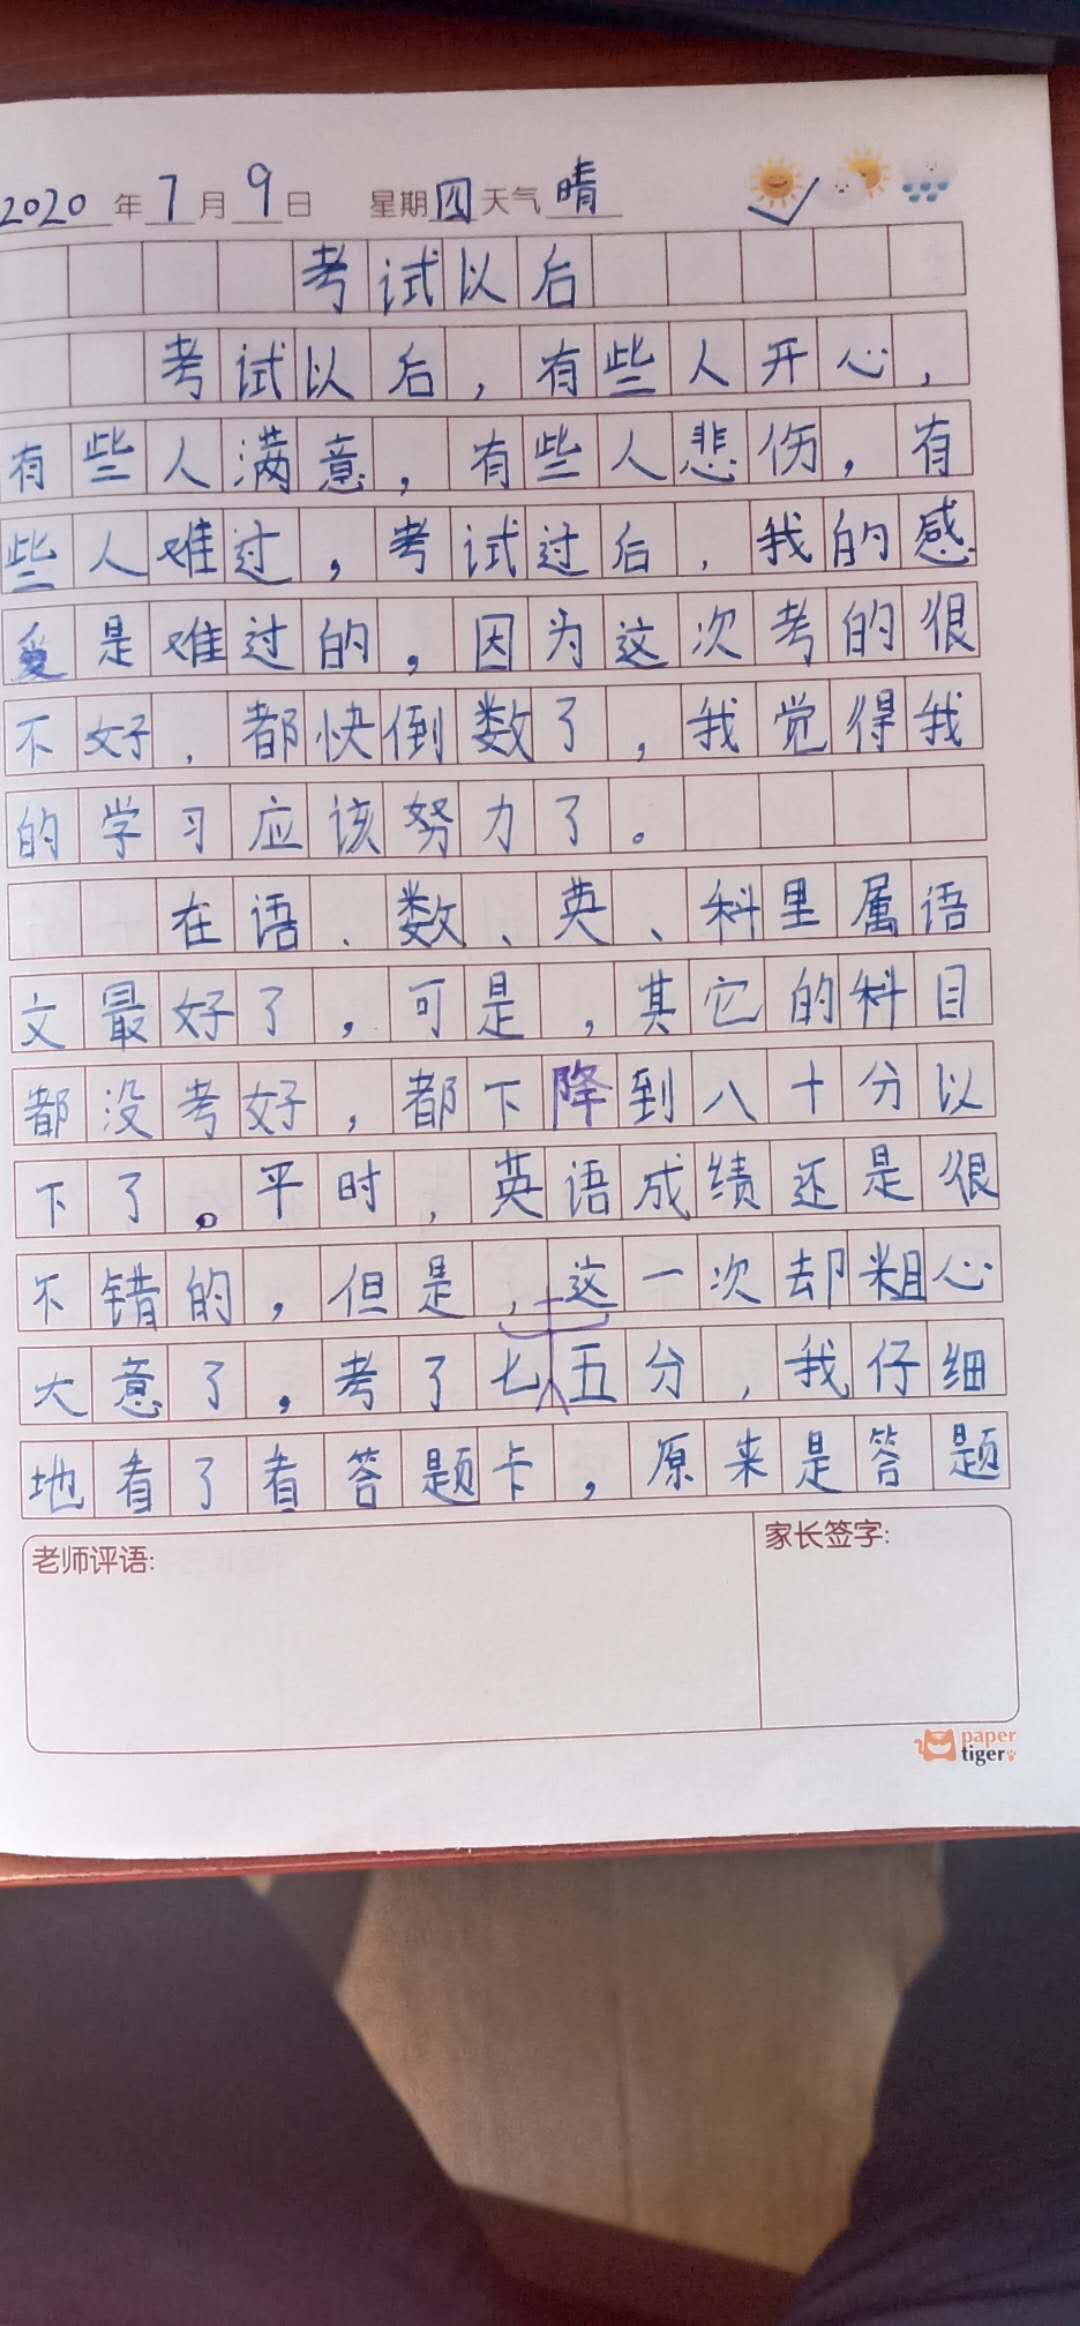 2020年7月9日 星期四天气晴
考试以后
考试以后，有些人开心，
有些人满意，有些人悲伤，有
些人难过，考试过后，我的感
爱是难过的，因为这次考的很
不好，都快倒数了，我觉得我
的学习应该努力了。
在语、数、英、科里属语
文最好了，可是，其它的科目
都没考好，都下降到八十分以
下了。平时，英语成绩还是很
不错的，但是，这一次却粗心
大意了，考了七十五分，我仔细
地看了看答题卡，原来是答题
老师评语:
家长签字:
paper
tiger